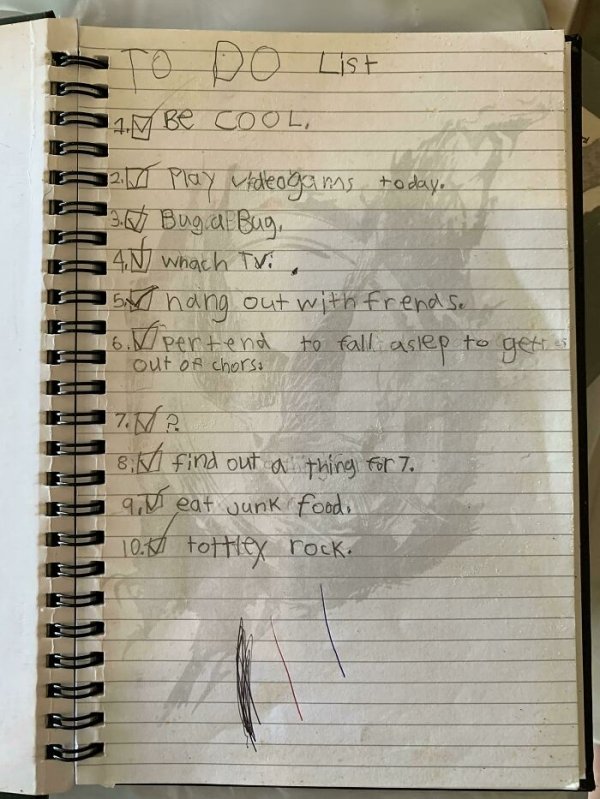 TO DO List
1. Be COOL.
2. Play videogams today.
3. Bug a Bug.
4. whach TV.
5. hang out with frends.
6. pertend to fall aslep to get
out of chors.
7. ?
8. find out a thing for 7.
9. eat junk food.
10. tottley rock.